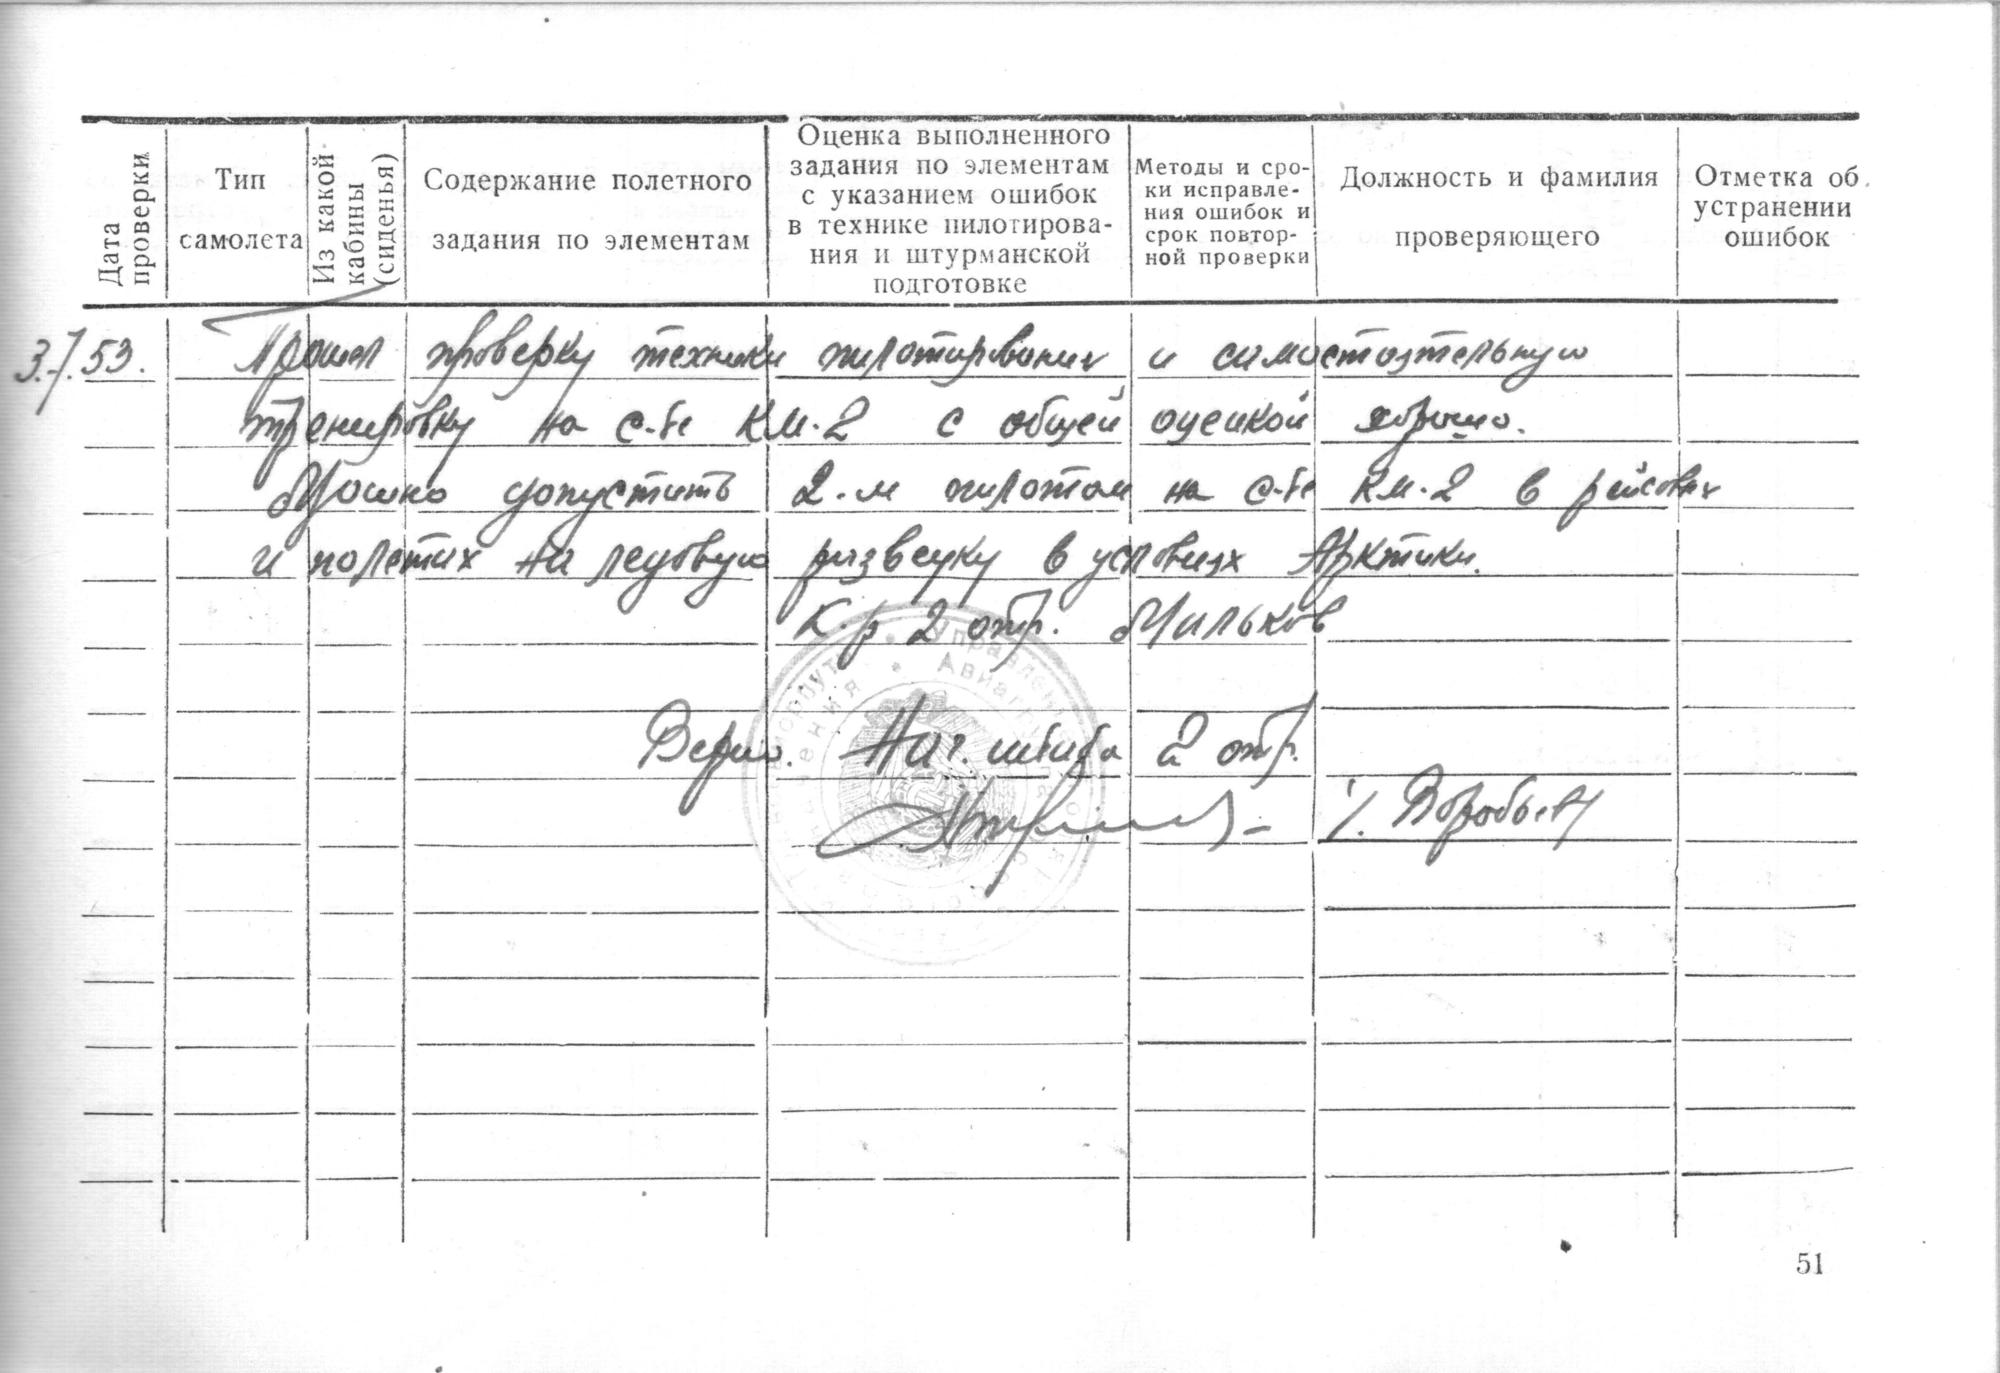 Дата проверки
Тип самолета
Из какой кабины (сиденья)
Содержание полетного задания по элементам
Оценка выполненного
задания по элементам
с указанием ошибок
в технике пилотирова-
ния и штурманской
подготовке
Методы и сро-
ки исправле-
ния ошибок и
срок повтор-
ной проверки
Должность и фамилия
проверяющего
Отметка об
устранении
ошибок
3.7.53. Прошел проверку техники пилотирования и самостоятельную
тренировку на с-те КМ-2 с общей оценкой хорошо.
Можно допустить 2-м пилотом на с-те КМ-2 в рейсовых
и полетах на ледовую разведку в условиях Арктики.
К-р 2 отр. Мильков
Верно. Нач. штаба 2 отр.
/. Воробьев/
Управлен
Авиагруппа
51